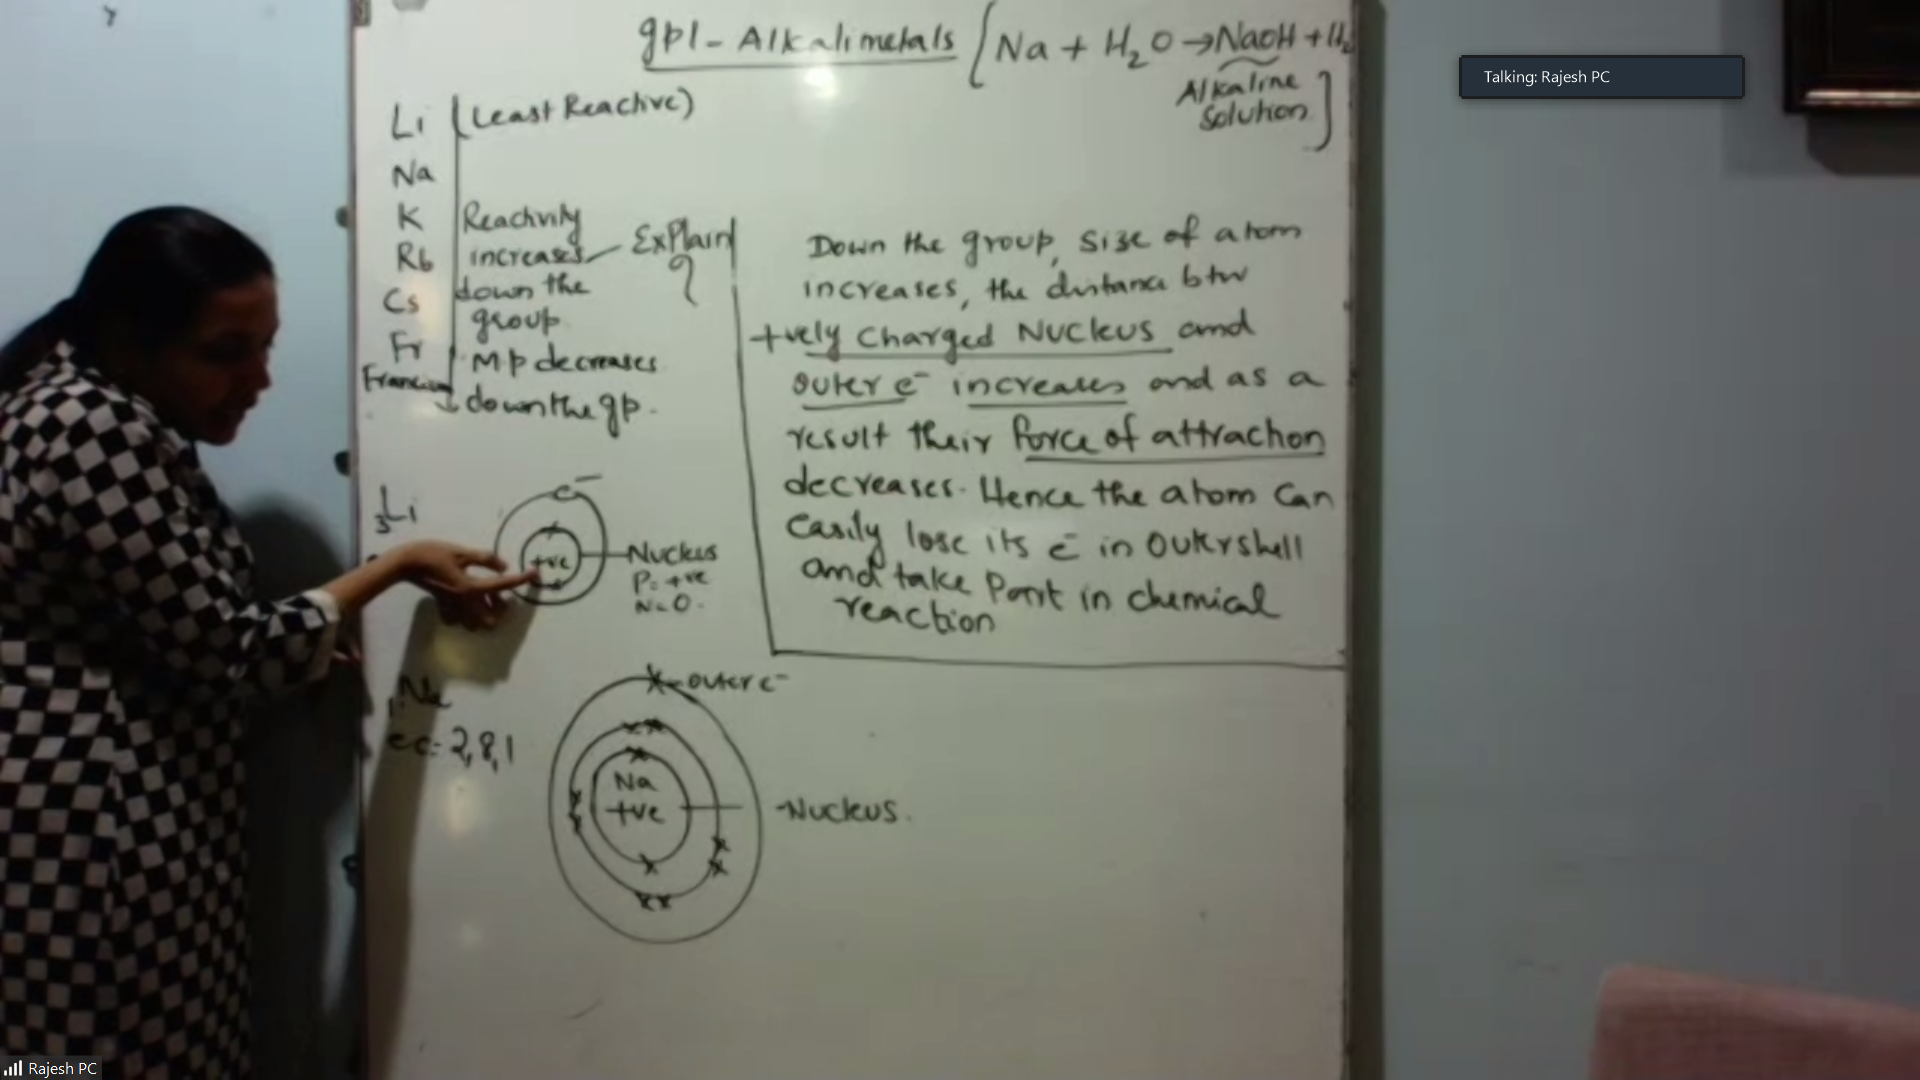 gp1 - Alkalimetals [Na + H₂O → NaOH + H₂
Alkaline
Solution]
Talking: Rajesh PC
Li (Least Reactive)
Na
K
Rb
Cs
Fr
Francium
Reactivity
increases
down the
group
Explain
?
MP decreases
down the gp.
Down the group, size of atom
increases, the distance btw
+vely charged Nucleus and
outer e⁻ increases and as a
result their force of attraction
decreases. Hence the atom can
easily lose its e⁻ in outershell
and take part in chemical
reaction
₃Li
e⁻
+ve
Nucleus
P = +ve
N = 0.
Na
ec = 2,8,1
outer e⁻
Na
+ve
Nucleus.
Rajesh PC